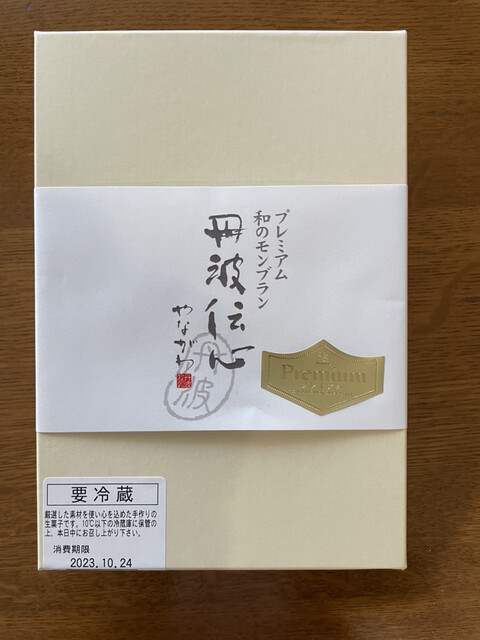 プレミアム
和のモンブラン
丹波伝心
やながわ
丹波
Premium
要冷蔵
厳選した素材を使い心を込めた手作りの
生菓子です。10℃以下の冷蔵庫に保管の
上、本日中にお召し上がり下さい。
消費期限
2023.10.24